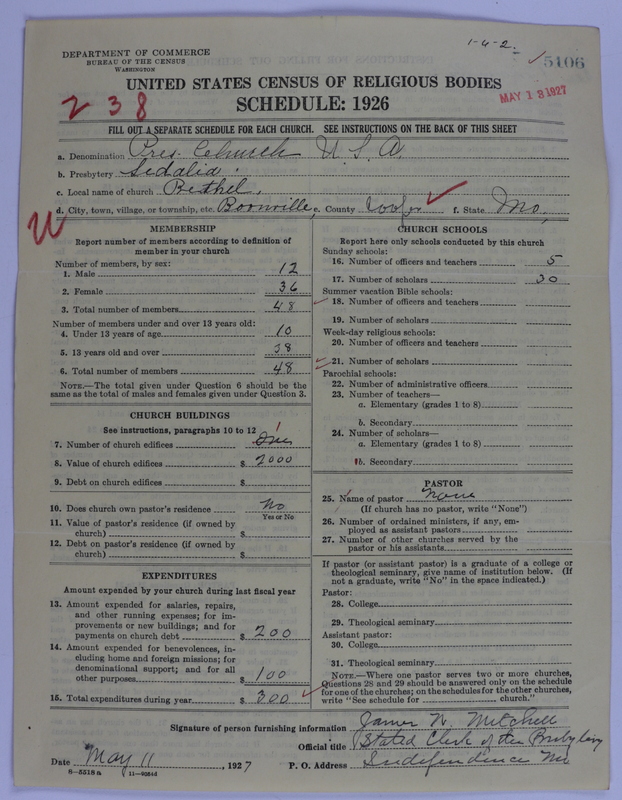 1-4-2
DEPARTMENT OF COMMERCE
BUREAU OF THE CENSUS
WASHINGTON
5106
MAY 13 1927
UNITED STATES CENSUS OF RELIGIOUS BODIES
SCHEDULE: 1926
238
FILL OUT A SEPARATE SCHEDULE FOR EACH CHURCH. SEE INSTRUCTIONS ON THE BACK OF THIS SHEET
a. Denomination Pres. Church U. S. A.
b. Presbytery Sedalia.
c. Local name of church Bethel,
d. City, town, village, or township, etc. Boonville e. County Cooper f. State Mo,
MEMBERSHIP
Report number of members according to definition of
member in your church
Number of members, by sex:
1. Male 12
2. Female 36
3. Total number of members 48
Number of members under and over 13 years old:
4. Under 13 years of age 10
5. 13 years old and over 38
6. Total number of members 48
NOTE.—The total given under Question 6 should be the
same as the total of males and females given under Question 3.
CHURCH BUILDINGS
See instructions, paragraphs 10 to 12
7. Number of church edifices One 1
8. Value of church edifices $ 2000
9. Debt on church edifices $
10. Does church own pastor's residence No
Yes or No
11. Value of pastor's residence (if owned by
church) $
12. Debt on pastor's residence (if owned by
church) $
EXPENDITURES
Amount expended by your church during last fiscal year
13. Amount expended for salaries, repairs,
and other running expenses; for im-
provements or new buildings; and for
payments on church debt $ 200
14. Amount expended for benevolences, in-
cluding home and foreign missions; for
denominational support; and for all
other purposes $ 100
15. Total expenditures during year $ 300
CHURCH SCHOOLS
Report here only schools conducted by this church
Sunday schools:
16. Number of officers and teachers 5
17. Number of scholars 30
Summer vacation Bible schools:
18. Number of officers and teachers
19. Number of scholars
Week-day religious schools:
20. Number of officers and teachers
21. Number of scholars
Parochial schools:
22. Number of administrative officers
23. Number of teachers—
a. Elementary (grades 1 to 8)
b. Secondary
24. Number of scholars—
a. Elementary (grades 1 to 8)
b. Secondary
PASTOR
25. Name of pastor None
(If church has no pastor, write "None")
26. Number of ordained ministers, if any, em-
ployed as assistant pastors
27. Number of other churches served by the
pastor or his assistants
If pastor (or assistant pastor) is a graduate of a college or
theological seminary, give name of institution below. (If
not a graduate, write "No" in the space indicated.)
Pastor:
28. College
29. Theological seminary
Assistant pastor:
30. College
31. Theological seminary
NOTE.—Where one pastor serves two or more churches,
Questions 28 and 29 should be answered only on the schedule
for one of the churches; on the schedules for the other churches,
write "See schedule for church."
Signature of person furnishing information James W. Mitchell
Official title Stated Clerk of the Presbytery
Date May 11, 1927 P. O. Address Independence Mo
8-5518a 11-6054d